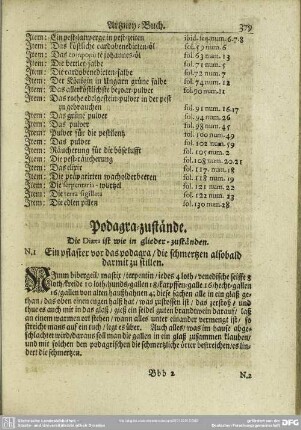 Artzney-Buch. 379
Item: Ein pestilatwerge in pestzeiten ibid. seq. num. 6. 7. 8
Item: Das köstliche cardobenedicten-öl fol. 59 num. 6
Item: Das componirte johannes-öl fol. 63 num. 13
Item: Die bertler-salbe fol. 71 num. 3
Item: Die cardobenedicten-salbe fol. 72 num. 7
Item: Der Königin in Ungarn grüne salbe fol. 74 num. 12
Item: Das allerköstlichste bezoar-pulver fol. 90 num. 11
Item: Das rothe edelgestein-pulver in der pest
zu gebrauchen fol. 91 num. 16.17
Item: Das grüne pulver fol. 94 num. 26
Item: Das pulver fol. 98 num. 45
Item: Pulver für die pestilentz fol. 100 num. 49
Item: Das pulver fol. 102 num. 59
Item: Räucherung für die böse lufft fol. 105 num. 2
Item: Die pesträucherung fol. 108 num. 20.21
Item: Das elixir fol. 117 num. 11
Item: Die präparirten wacholderbeeren fol. 118 num. 12
Item: Die serpentaria-wurtzel fol. 121 num. 22
Item: Die terra sigillata fol. 122 num. 23
Item: Die edlen pillen fol. 130 num. 28
Podagra-zustände.
Die Diæta ist wie in glieder-zuständen.
N.1 Ein pflaster vor das podagra/ die schmertzen alsobald
darmit zu stillen.
NImm bibergeil/ mastix/ terpentin/ jedes 4 loth/ venedische seiffe 8
loth/ kreide 10 loth/ hunds-gallen 1 & karpffen-galle 16/ hecht-gallen
16/ gallen von alten haußhähnen 4/ diese sachen alle in ein glaß ge-
than/ das oben einen engen halß hat/ was zustossen ist/ das zerstoß/ und
thue es auch mit in das glaß/ gieß ein seidel guten brandtwein darauf/ laß
an einem warmen ort stehen/ wann alles unter einander vermengt ist/ so
streicht mans auf ein tuch/ legt es über. Auch alles/ was im hause abge-
schlachtet wird/ daraus soll man die gallen in ein glaß zusammen klauben/
und mit solchen den podagrischen die schmertzliche örter bestreichen/ es lin-
dert die schmertzen.
Bbb 2 N. 2